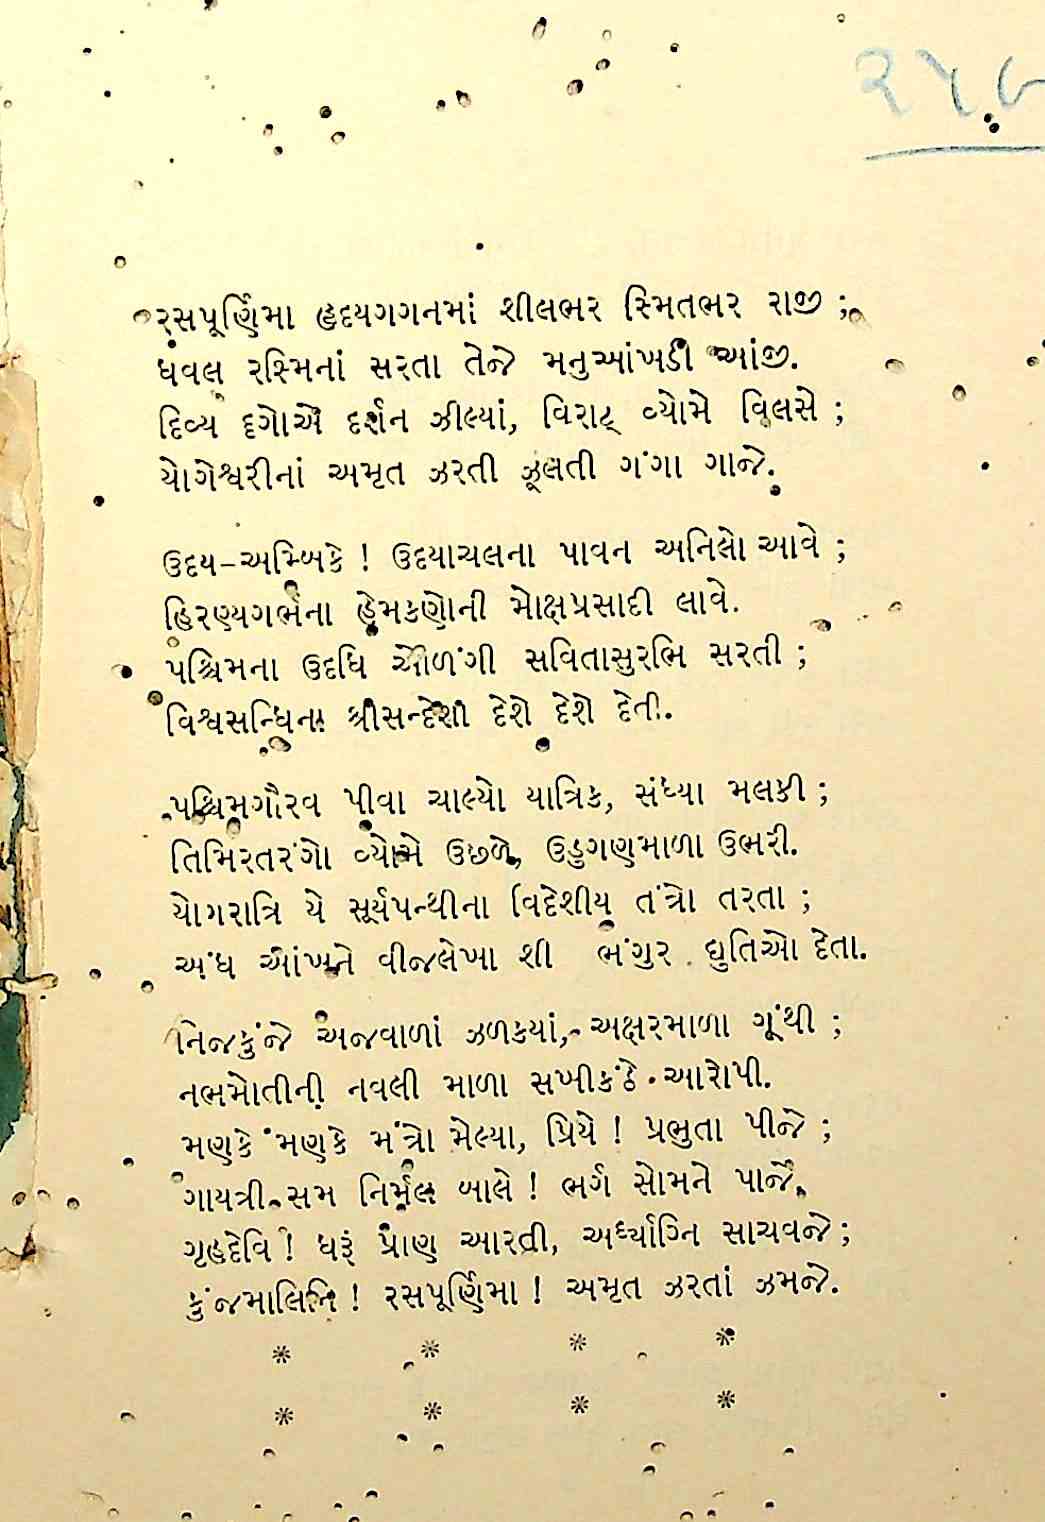 રસપૂર્ણિમા હૃદયગગનમાં શીલભર સ્મિતભર રાજી ;
ધવલ રસ્મિનાં સરતા તેજે મનુઆંખડી આંજી.
દિવ્ય દૃગોએ દર્શન ઝીલ્યાં, વિરાટ્ વ્યોમે વિલસે ;
યોગેશ્વરીનાં અમૃત ઝરતી ઝૂલતી ગંગા ગાજે.
ઉદય-અમ્બિકે ! ઉદયાચલના પાવન અનિલો આવે ;
હિરણ્યગર્ભના હેમકણોની મોક્ષપ્રસાદી લાવે.
પશ્ચિમના ઉદધિ ઓળંગી સવિતાસુરભિ સરતી ;
વિશ્વસન્ધિના શ્રીસન્દેશો દેશે દેશે દેતી.
પશ્ચિમગૌરવ પીવા ચાલ્યો યાત્રિક, સંધ્યા મલકી ;
તિમિરતરંગો વ્યોમે ઉછળે, ઉડુગણમાળા ઉભરી.
યોગરાત્રિ યે સૂર્યપન્થીના વિદેશીય તંત્રો તરતા ;
અંધ આંખને વીજલેખા શી ભંગુર દ્યુતિઓ દેતા.
નિજકુંજે અજવાળાં ઝળકયાં, અક્ષરમાળા ગૂંથી ;
નભમોતીની નવલી માળા સખીકંઠે આરોપી.
મણકે મણકે મંત્રો મેલ્યા, પ્રિયે ! પ્રભુતા પીજે ;
ગાયત્રી સમ નિર્મલ બાલે ! ભર્ગ સોમને પાજે.
ગૃહદેવિ ! ધરૂં પ્રાણ આરતી, અર્ધ્યાગ્નિ સાચવજે ;
કુંજમાલિનિ ! રસપૂર્ણિમા ! અમૃત ઝરતાં ઝમજે.
* * * *
* * * *